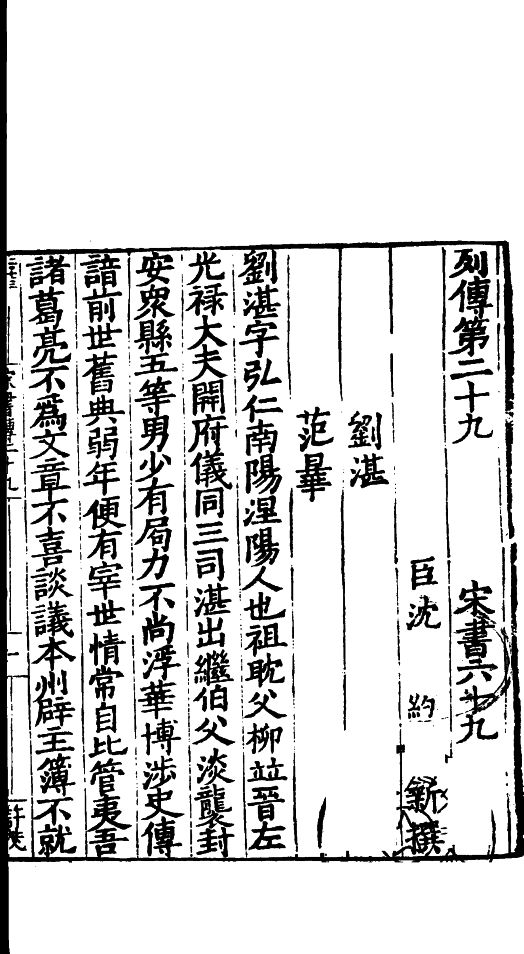 列傳第二十九　宋書六十九
臣沈　約　新撰
劉湛
范曄
劉湛字弘仁南陽涅陽人也祖耽父柳竝晉左
光祿大夫開府儀同三司湛出繼伯父淡襲封
安衆縣五等男少有局力不尚浮華博涉史傳
諳前世舊典弱年便有宰世情常自比管夷吾
諸葛亮不爲文章不喜談議本州辟主簿不就